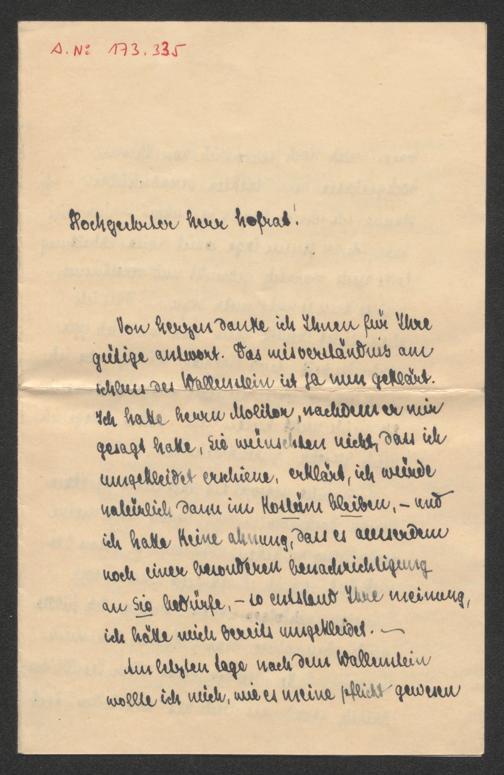 A.Nº 173.335
Hochgeehrter Herr Hofrat!
Von herzen danke ich Ihnen für Ihre
gütige antwort. Das misverständnis am
schluss des Wallenstein ist ja nun geklärt.
Ich hatte herrn Molitor, nachdem er mir
gesagt hatte, Sie wünschten nicht, dass ich
umgekleidet erschiene, erklärt, ich würde
natürlich dann im Kostüm bleiben, – und
ich hatte keine ahnung, dass es ausserdem
noch einer besonderen benachrichtigung
an Sie bedürfe, – so entstand Ihre meinung,
ich hätte mich bereits umgekleidet. –
Am letzten tage nach dem Wallenstein
wollte ich mich, wie es meine pflicht gewesen